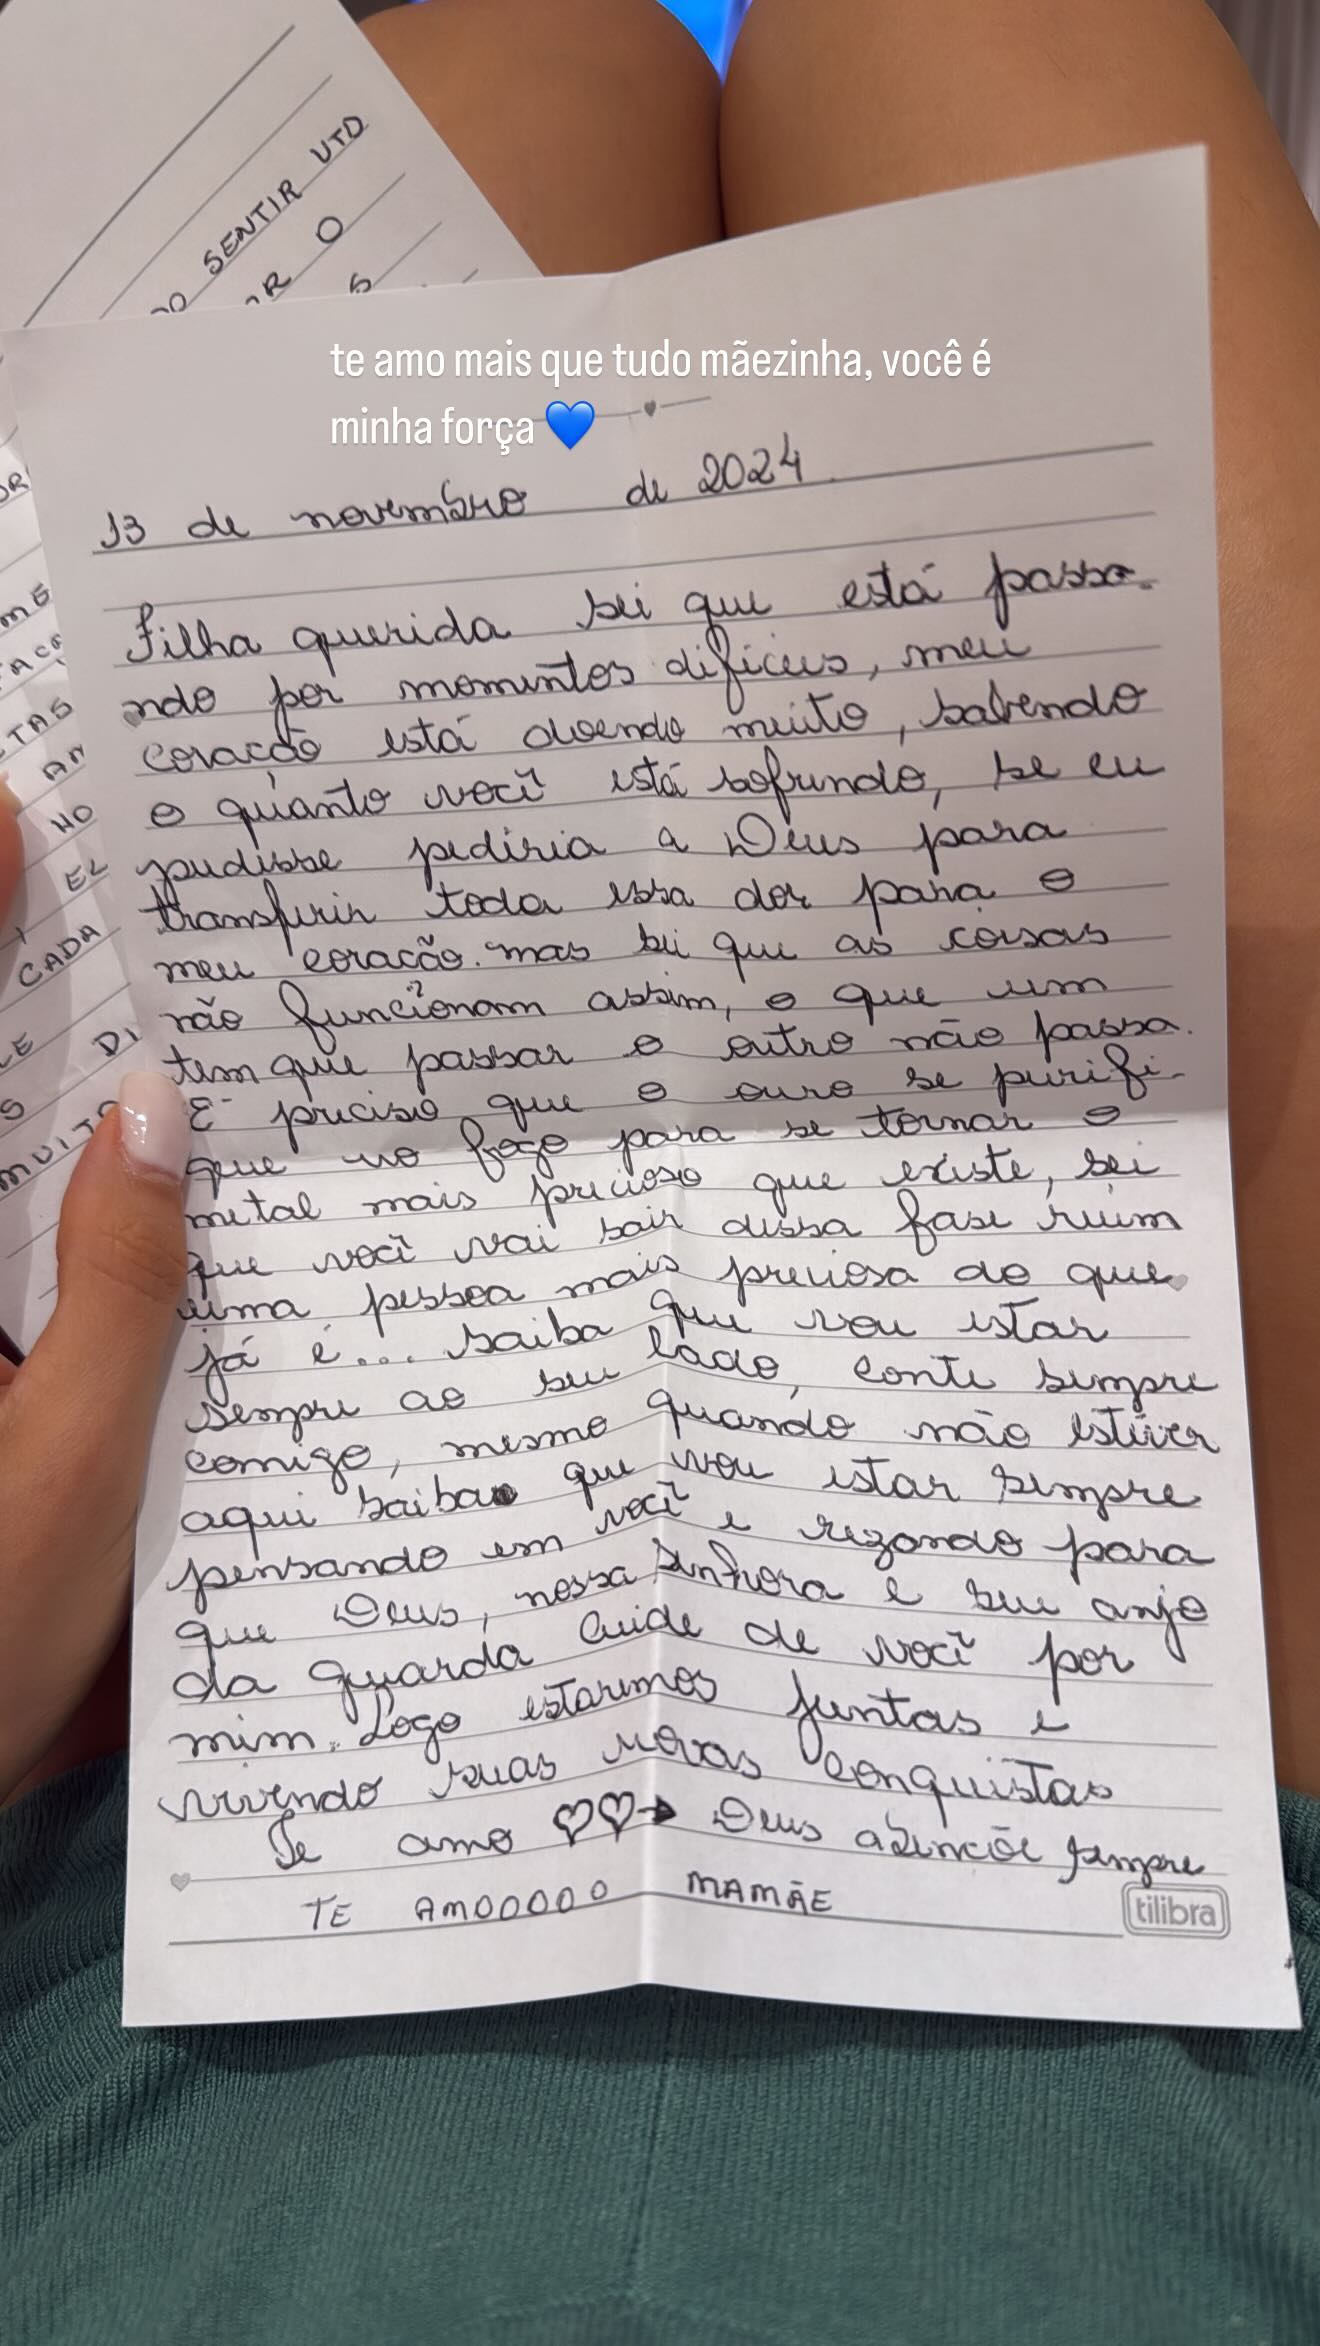 SENTIR UTD
O
te amo mais que tudo mãezinha, você é
minha força 💙
13 de novembro de 2024
Filha querida sei que está passa-
ndo por momentos difíceis, meu
coração está doendo muito, sabendo
o quanto você está sofrendo, se eu
pudesse pediria a Deus para
transferir toda essa dor para o
meu coração. mas sei que as coisas
não funcionam assim, o que um
tem que passar o outro não passa.
E preciso que o ouro se purifi-
que no fogo para se tornar o
metal mais precioso que existe, sei
que você vai sair dessa fase ruim
uma pessoa mais preciosa do que
já é... saiba que vou estar
sempre ao seu lado, conte sempre
comigo, mesmo quando não estiver
aqui saiba que vou estar sempre
pensando em você e rezando para
que Deus, nossa Senhora e seu anjo
da guarda cuide de você por
mim. Logo estaremos juntas e
vivendo suas novas conquistas
Te amo ♡♡→ Deus abençõe sempre
TE AMOOOOO MAMÃE
tilibra
CADA